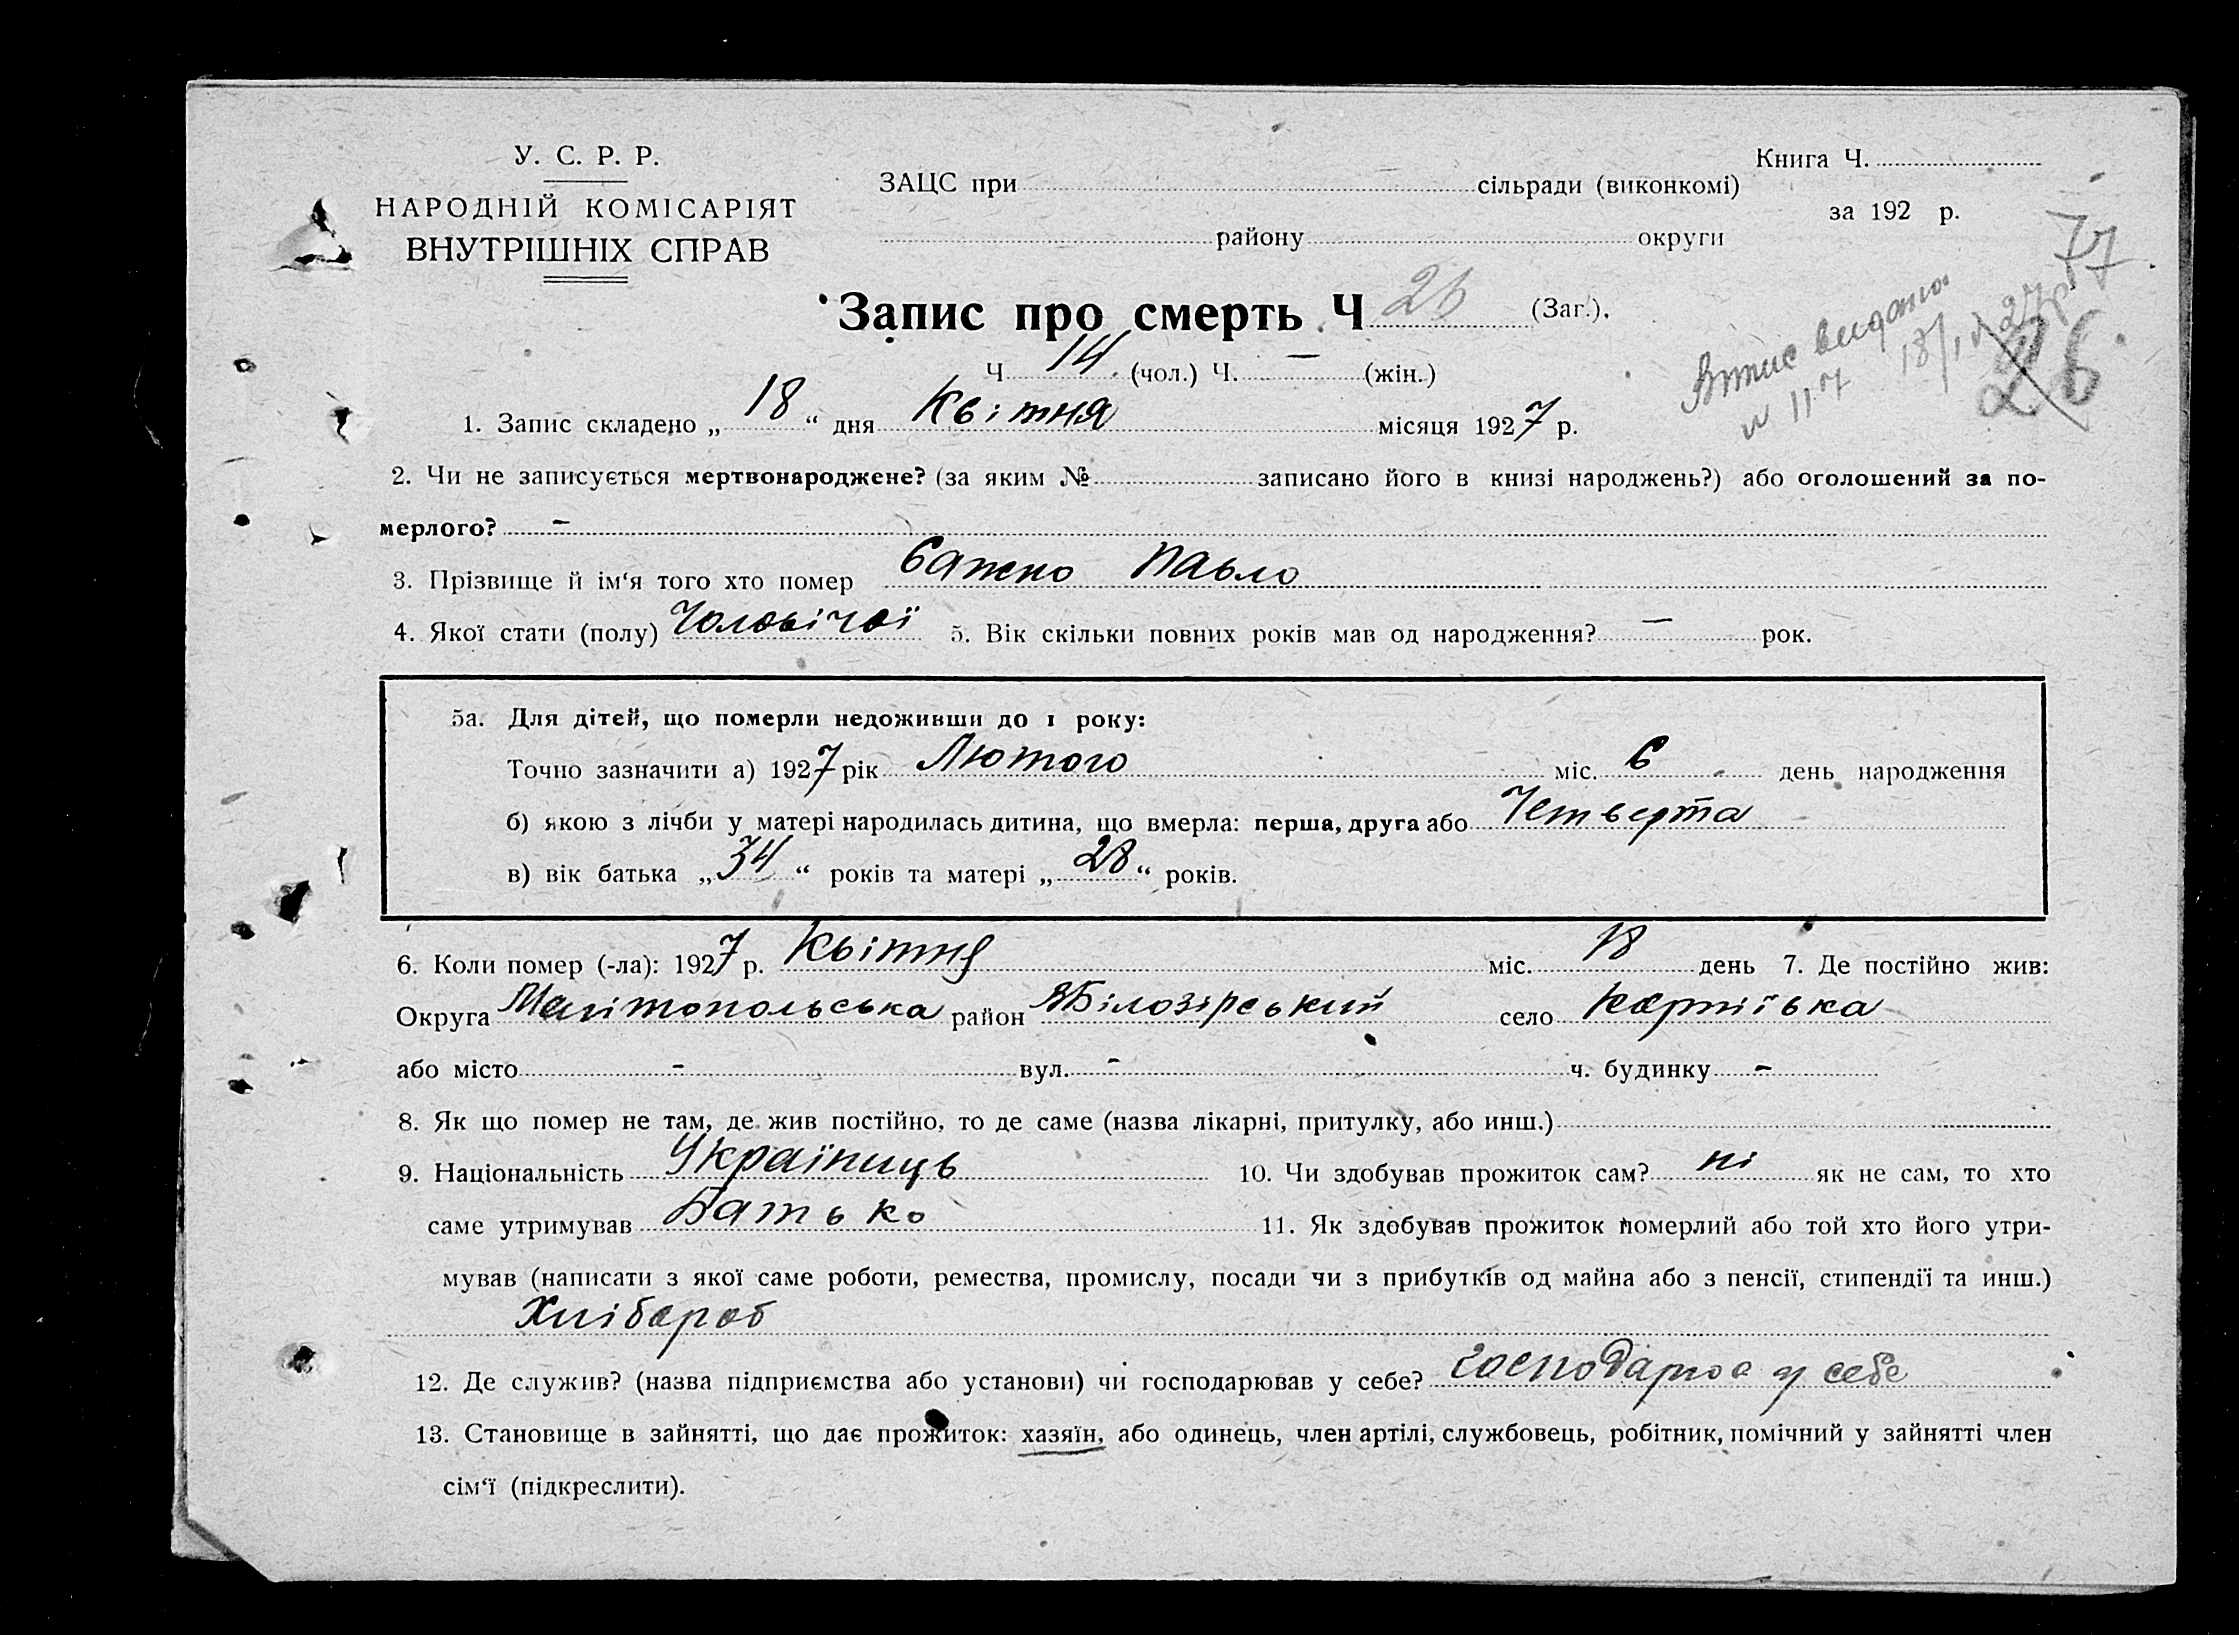 У. С. Р. Р.
НАРОДНІЙ КОМІСАРІЯТ
ВНУТРІШНІХ СПРАВ
Книга Ч.
ЗАЦС при сільради (виконкомі)
за 192 р.
району округи
77
Запис про смерть Ч 26 (Заг.).
Витис видана
18/IV 27р.
26
Ч 14 (чол.) Ч. – (жін.)
№ 117
1. Запис складено „ 18 “ дня Квітня місяця 1927 р.
2. Чи не записується мертвонароджене? (за яким № записано його в книзі народжень?) або оголошений за по-
мерлого? –
3. Прізвище й ім‘я того хто помер Бажно Павло
4. Якої стати (полу) Чоловічої 5. Вік скільки повних років мав од народження? – рок.
5а. Для дітей, що померли недоживши до 1 року:
Точно зазначити а) 1927 рік Лютого міс. 6 день народження
б) якою з лічби у матері народилась дитина, що вмерла: перша, друга або Четверта
в) вік батька „ 34 “ років та матері „ 28 “ років.
6. Коли помер (-ла): 1927 р. Квітня міс. 18 день 7. Де постійно жив:
Округа Мелітопольська район ЯБілозірський село
або місто – вул. – ч. будинку –
8. Як що помер не там, де жив постійно, то де саме (назва лікарні, притулку, або инш.)
9. Національність Україниць 10. Чи здобував прожиток сам? ні як не сам, то хто
саме утримував Батько 11. Як здобував прожиток померлий або той хто його утри-
мував (написати з якої саме роботи, ремества, промислу, посади чи з прибутків од майна або з пенсії, стипендії та инш.)
Хлібороб
12. Де служив? (назва підприємства або установи) чи господарював у себе? господарює у себе
13. Становище в зайнятті, що дає прожиток: хазяїн, або одинець, член артілі, службовець, робітник, помічний у зайнятті член
сім‘ї (підкреслити).